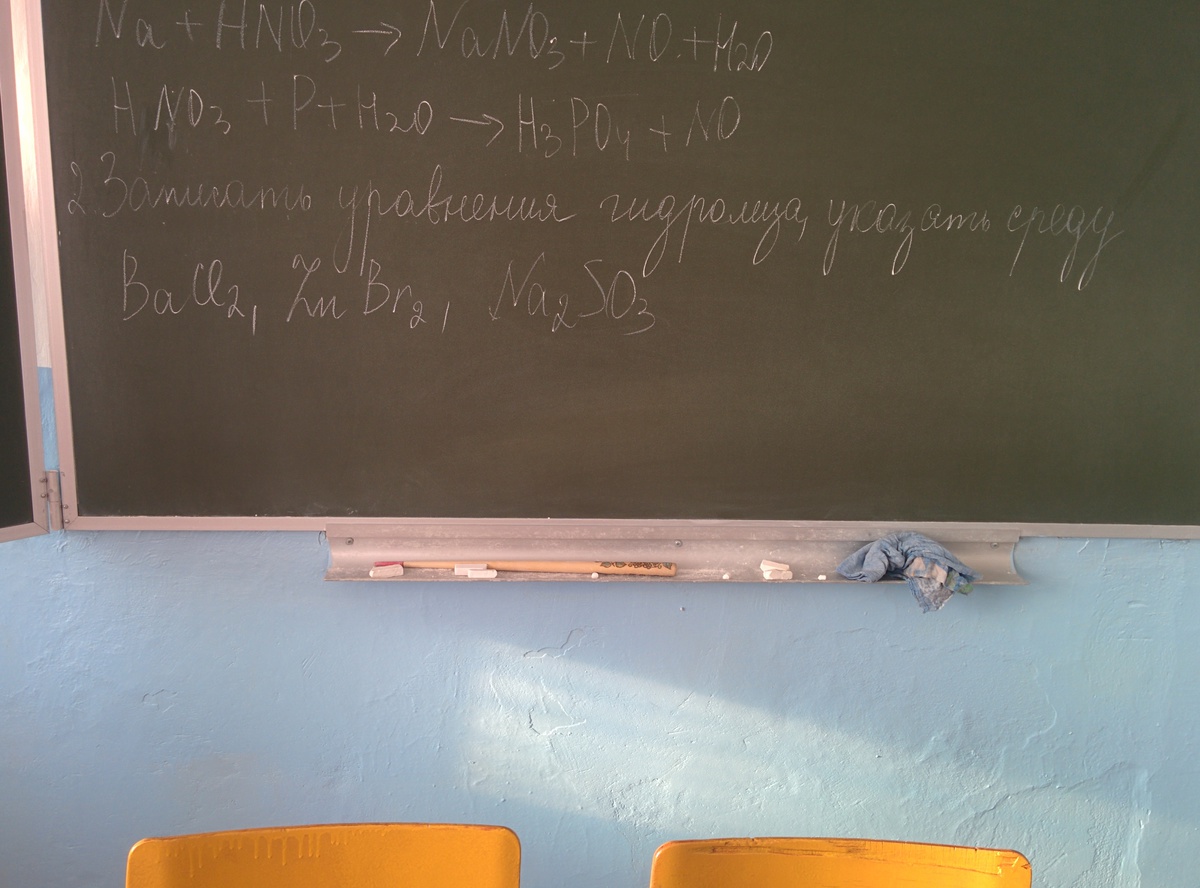 Na + HNO3 → NaNO3 + NO + H2O
HNO3 + P + H2O → H3PO4 + NO
2. Записать уравнения гидролиза, указать среду
BaCl2, ZnBr2, Na2SO3